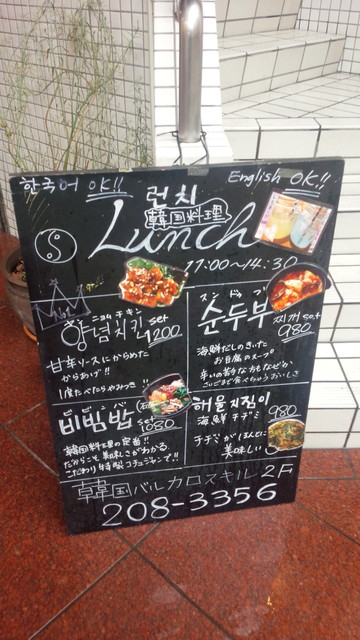 한국어 OK!!
English OK!!
런치
韓国料理
Lunch
11:00〜14:30
ニョム チキン
양념치킨 set
1200
甘辛ソースにからめた
からあげ!!
1度たべたらやみつき!!
スンドゥブ
순두부 찌개 set
980
海鮮だしのきいた
お豆腐のスープ
辛いの苦手な方もなぜか
비빔밥
set
1080
韓国料理の定番!!
だからこそ美味しさがわかる
こだわり特製コチュジャンで!!
해물지짐이
980
海鮮チヂミ
チヂミがほんとに
美味しい
韓国バル カロスキル 2F
208-3356